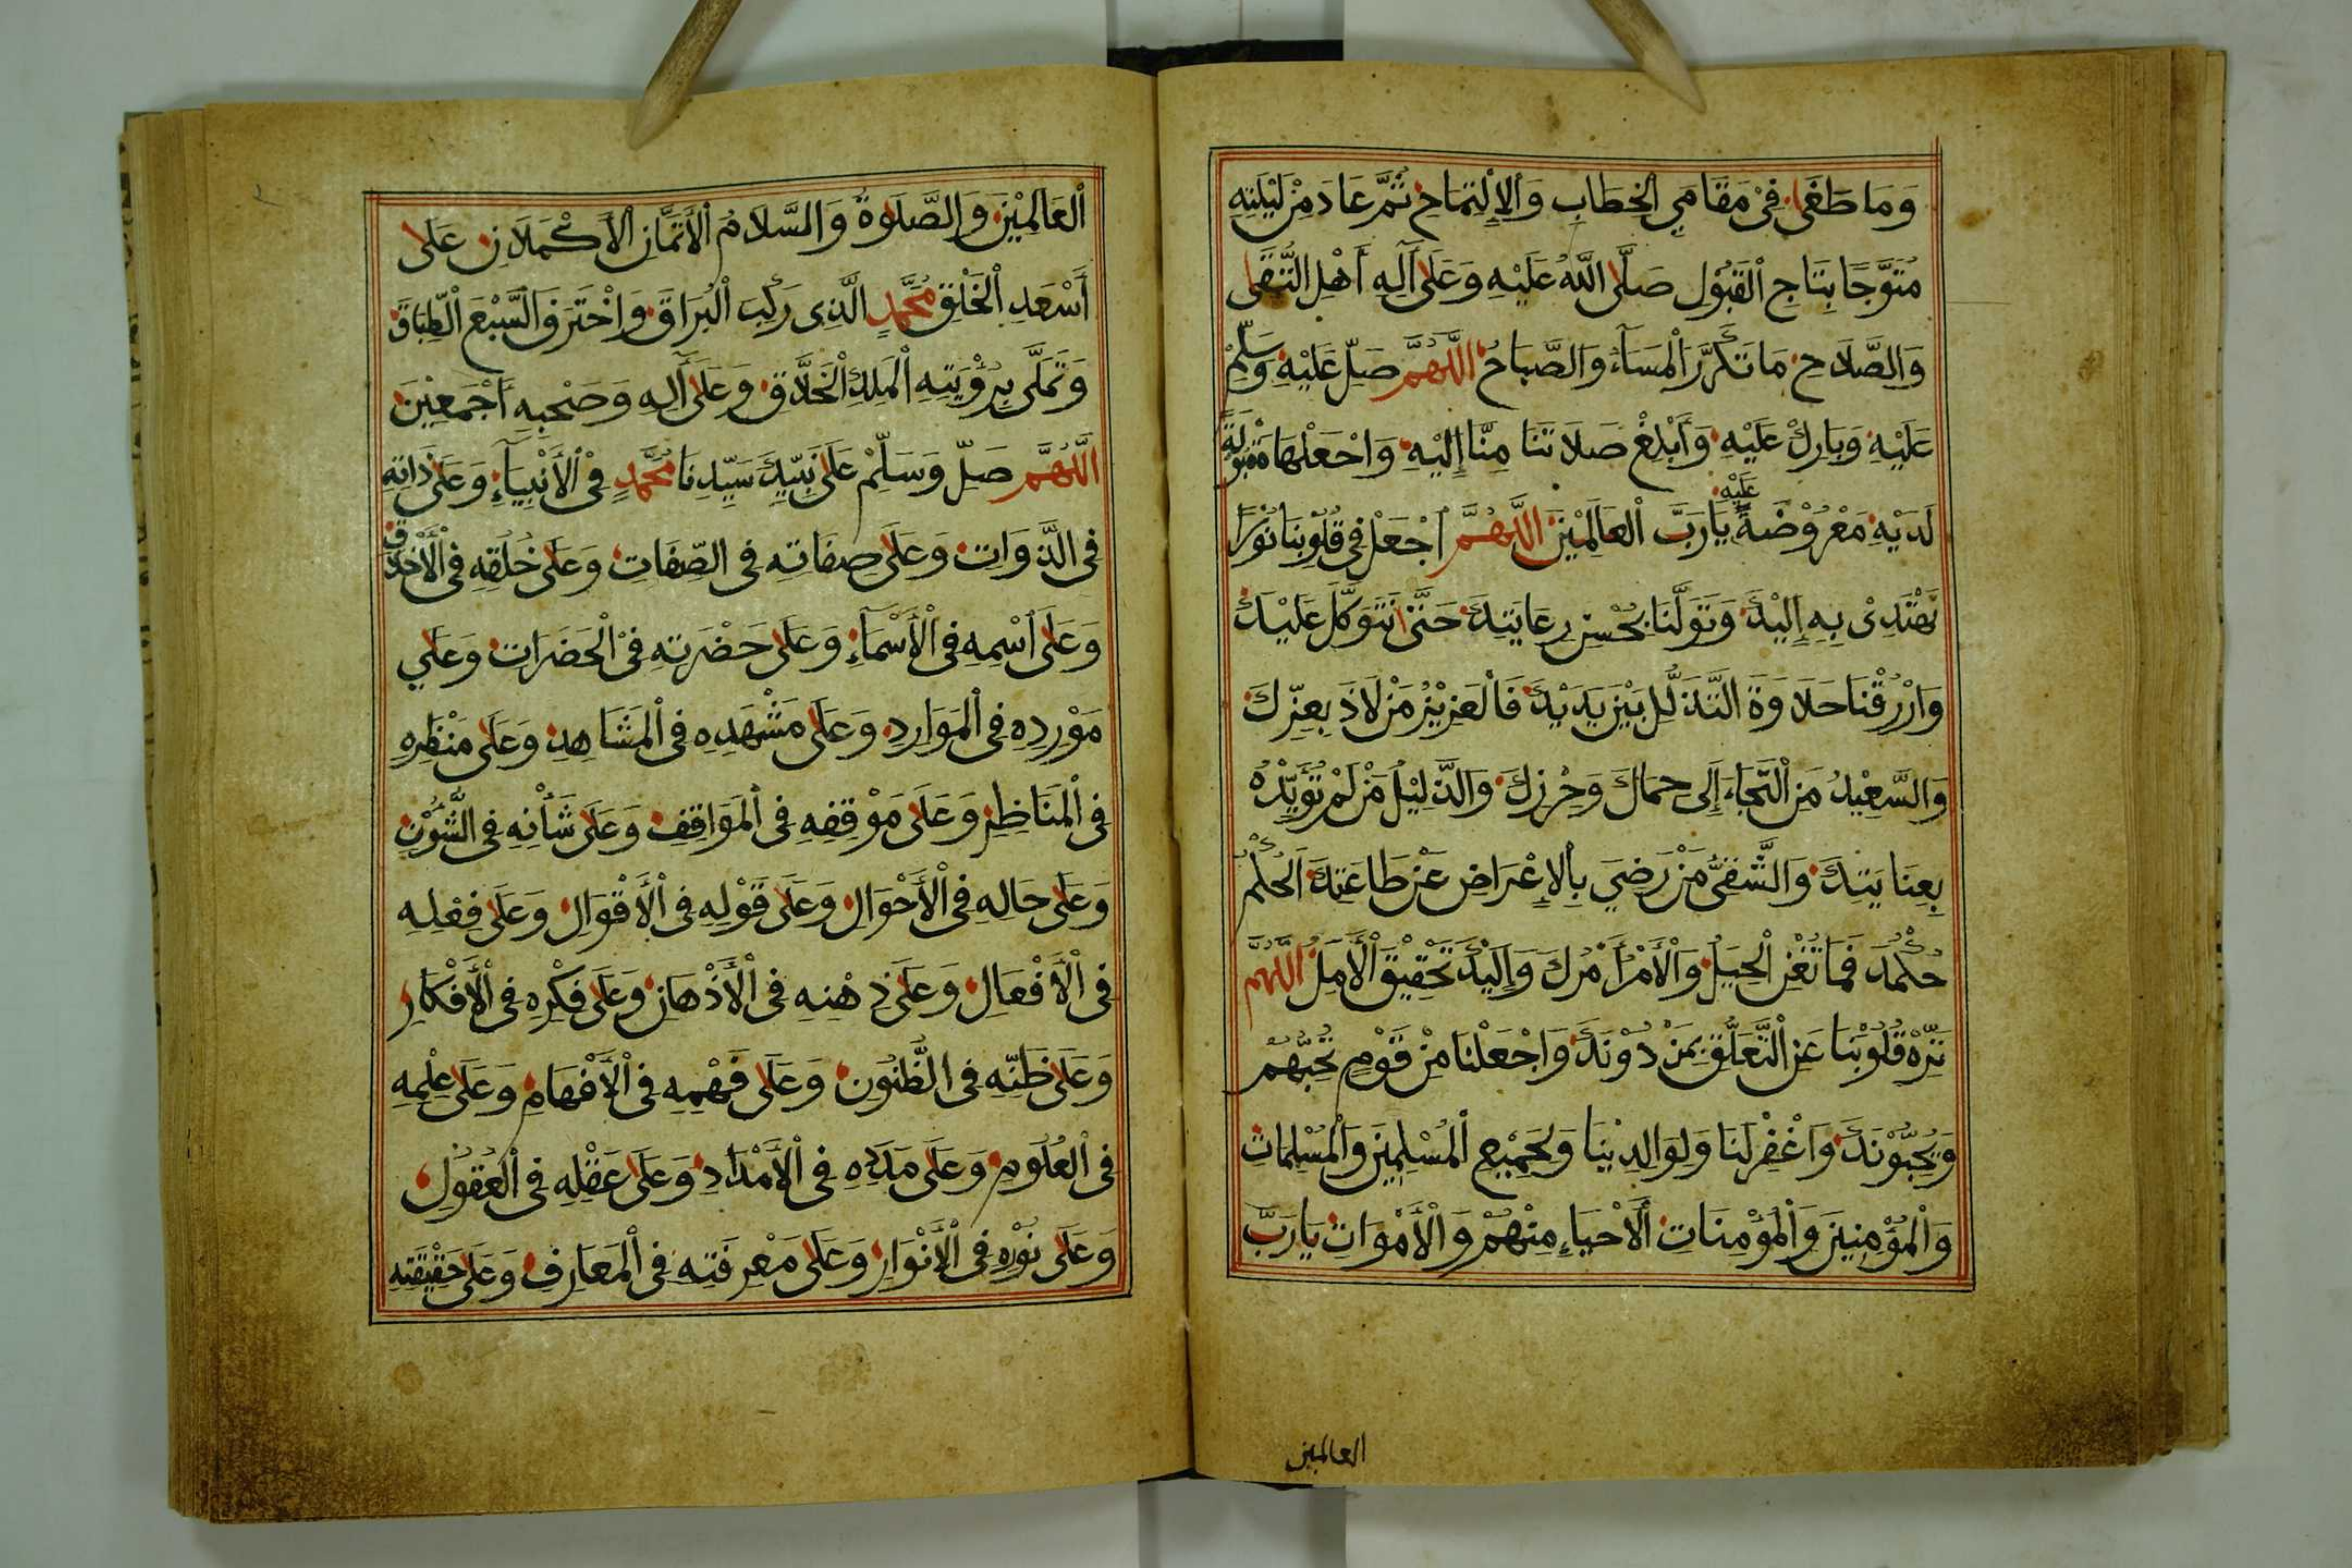 وَمَا طَغَى فِيْ مَقَامَيِ الْخِطَابِ وَالْاِلْتِمَاحِ ثُمَّ عَادَ مِنْ لَيْلَتِهِ
مُتَوَّجًا بِتَاجِ الْقَبُوْلِ صَلَّى اللَّهُ عَلَيْهِ وَعَلَى آلِهِ أَهْلِ التُّقَى
وَالصَّلَاحِ مَا تَكَرَّرَ الْمَسَآءُ وَالصَّبَاحُ اللَّهُمَّ صَلِّ عَلَيْهِ وَسَلِّمْ
عَلَيْهِ وَبَارِكْ عَلَيْهِ وَأَبْلِغْ صَلَاتَنَا مِنَّا إِلَيْهِ وَاجْعَلْهَا مَقْبُوْلَةً
لَدَيْهِ مَعْرُوْضَةً عَلَيْهِ يَارَبَّ الْعَالَمِيْنَ اللَّهُمَّ اجْعَلْ فِي قُلُوْبِنَا نُوْرًا
نَهْتَدِىْ بِهِ إِلَيْكَ وَتَوَلَّنَا بِحُسْنِ رِعَايَتِكَ حَتَّى نَتَوَكَّلَ عَلَيْكَ
وَارْزُقْنَا حَلَاوَةَ التَّذَلُّلِ بَيْنَ يَدَيْكَ فَالْعَزِيْزُ مَنْ لَاذَ بِعِزِّكَ
وَالسَّعِيْدُ مَنِ الْتَجَاءَ إِلَى حِمَاكَ وَحِرْزِكَ وَالذَّلِيْلُ مَنْ لَمْ تُؤَيِّدْهُ
بِعِنَايَتِكَ وَالشَّقِيُّ مَنْ رَضِيَ بِالْإِعْرَاضِ عَنْ طَاعَتِكَ الْحُكْمُ
حُكْمُكَ فَمَا تُغْنِ الْحِيَلُ وَالْأَمْرُ أَمْرُكَ وَإِلَيْكَ تَحْقِيْقُ الْأَمَلِ اللَّهُمَّ
نَزِّهْ قُلُوْبَنَا عَنِ التَّعَلُّقِ بِمَنْ دُوْنَكَ وَاجْعَلْنَا مِنْ قَوْمٍ تُحِبُّهُمْ
وَيُحِبُّوْنَكَ وَاغْفِرْ لَنَا وَلِوَالِدِيْنَا وَلِجَمِيْعِ الْمُسْلِمِيْنَ وَالْمُسْلِمَاتِ
وَالْمُؤْمِنِيْنَ وَالْمُؤْمِنَاتِ الْأَحْيَاءِ مِنْهُمْ وَالْأَمْوَاتِ يَارَبَّ
العالمين
الْعَالَمِيْنَ وَالصَّلَوةُ وَالسَّلَامُ الْأَتَمَّانِ الْأَكْمَلَانِ عَلَى
أَسْعَدِ الْخَلْقِ مُحَمَّدٍ الَّذِى رَكِبَ الْبُرَاقَ وَاخْتَرَقَ السَّبْعَ الطِّبَاقَ
وَتَمَلَّى بِرُؤْيَتِهِ الْمَلِكِ الْخَلَّاقِ وَعَلَى آلِهِ وَصَحْبِهِ أَجْمَعِيْنَ
اللَّهُمَّ صَلِّ وَسَلِّمْ عَلَى نَبِيِّكَ سَيِّدِنَا مُحَمَّدٍ فِيْ الْأَنْبِيَآءِ وَعَلَى ذَاتِهِ
فِى الذَّوَاتِ وَعَلَى صِفَاتِهِ فِى الصِّفَاتِ وَعَلَى خُلُقِهِ فِى الْأَخْلَاقِ
وَعَلَى اسْمِهِ فِى الْأَسْمَآءِ وَعَلَى حَضْرَتِهِ فِيْ الْحَضَرَاتِ وَعَلَي
مَوْرِدِهِ فِى الْمَوَارِدِ وَعَلَى مَشْهَدِهِ فِى الْمَشَاهِدِ وَعَلَى مَنْظَرِهِ
فِى الْمَنَاظِرِ وَعَلَى مَوْقِفِهِ فِى الْمَوَاقِفِ وَعَلَى شَأْنِهِ فِى الشُّؤُنِ
وَعَلَى حَالِهِ فِى الْأَحْوَالِ وَعَلَى قَوْلِهِ فِى الْأَقْوَالِ وَعَلَى فِعْلِهِ
فِى الْأَفْعَالِ وَعَلَى ذِهْنِهِ فِى الْأَذْهَانِ وَعَلَى فِكْرِهِ فِى الْأَفْكَارِ
وَعَلَى ظَنِّهِ فِى الظُّنُوْنِ وَعَلَى فَهْمِهِ فِى الْأَفْهَامِ وَعَلَى عِلْمِهِ
فِى الْعُلُوْمِ وَعَلَى مَدَدِهِ فِى الْأَمْدَادِ وَعَلَى عَقْلِهِ فِى الْعُقُوْلِ
وَعَلَى نُوْرِهِ فِى الْأَنْوَارِ وَعَلَى مَعْرِفَتِهِ فِى الْمَعَارِفِ وَعَلَى حَقِيْقَتِهِ